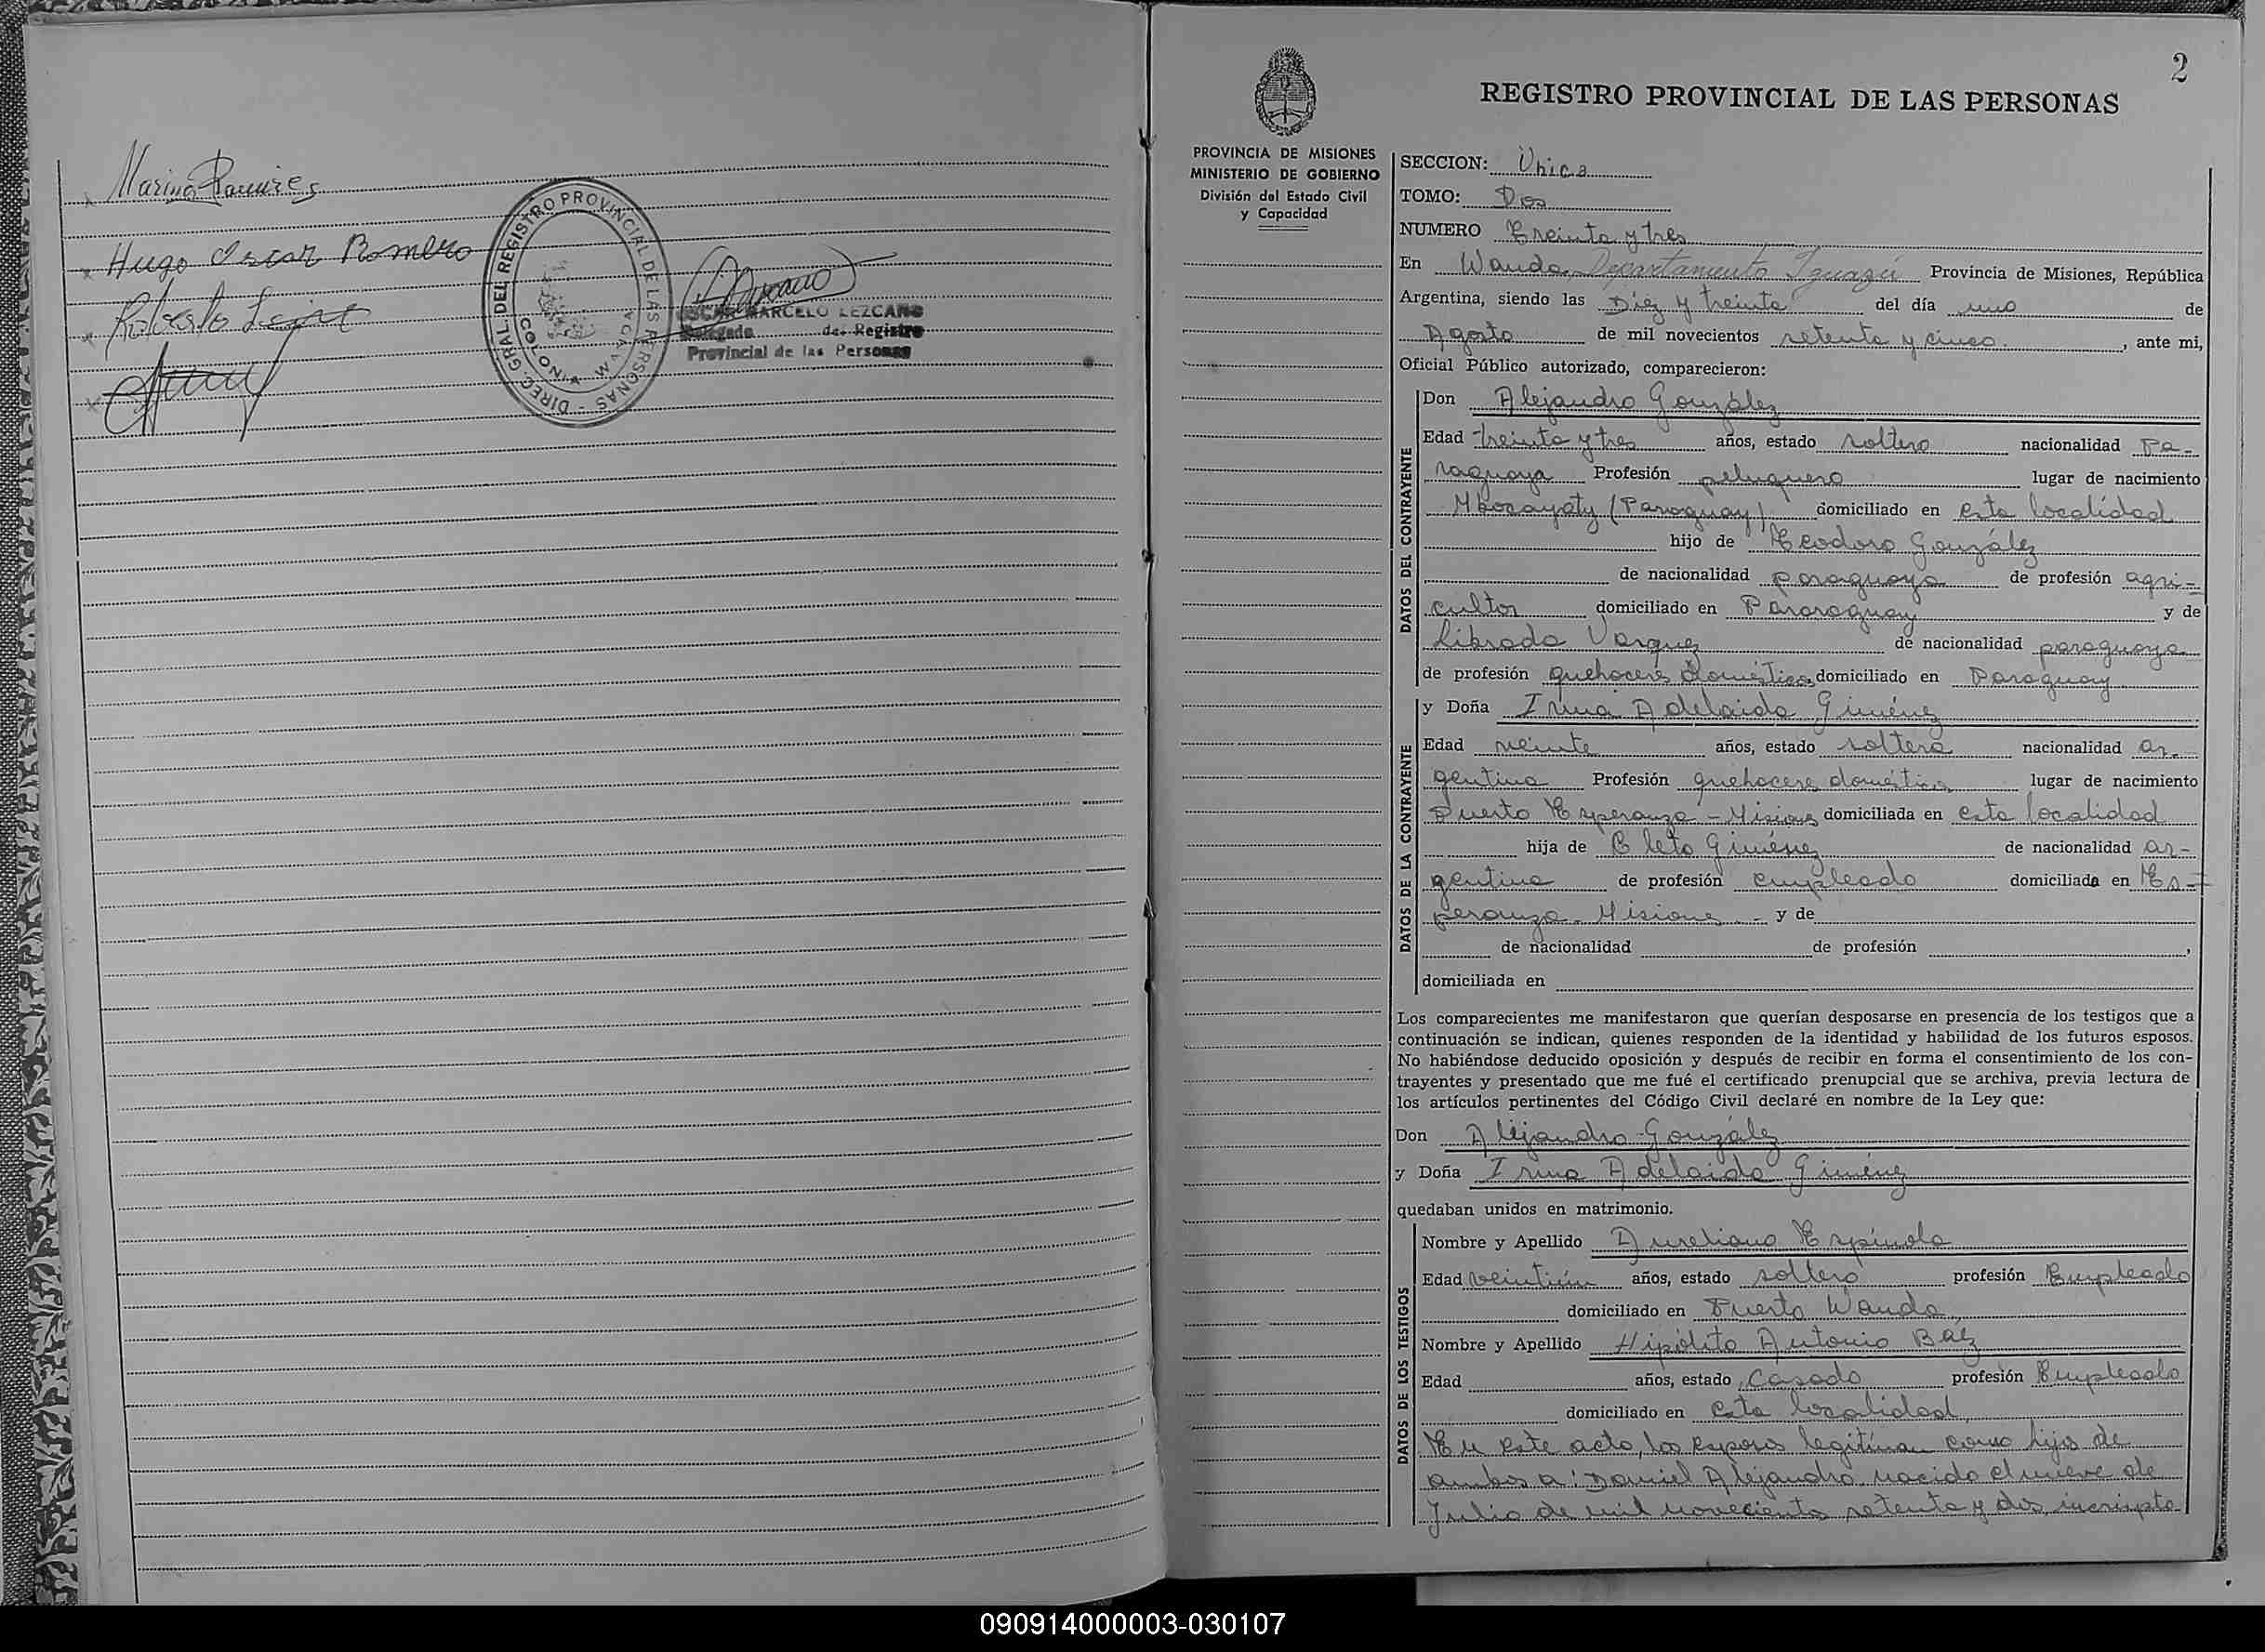 Marina Ramires
Hugo Oscar Romero
Roberto
DIREC. GRAL. DEL REGISTRO PROVINCIAL DE LAS PERSONAS -
COLONIA WANDA
OSCAR MARCELO LEZCANO
Delegado del Registro
Provincial de las Personas
2
REGISTRO PROVINCIAL DE LAS PERSONAS
PROVINCIA DE MISIONES
MINISTERIO DE GOBIERNO
División del Estado Civil
y Capacidad
SECCION: Unica
TOMO: Dos
NUMERO Treinta y tres
En Wanda, Departamento Iguazú Provincia de Misiones, República
Argentina, siendo las Diez y treinta del día uno de
Agosto de mil novecientos setenta y cinco, ante mi,
Oficial Público autorizado, comparecieron:
DATOS DEL CONTRAYENTE
Don Alejandro González
Edad treinta y tres años, estado soltero nacionalidad Pa-
raguaya Profesión peluquero lugar de nacimiento
Mbocayaty (Paraguay) domiciliado en esta localidad
hijo de Teodoro González
de nacionalidad paraguaya de profesión agri-
cultor domiciliado en Pararaguay y de
Librada Vasquez de nacionalidad paraguaya
de profesión quehaceres domésticos domiciliado en Paraguay
DATOS DE LA CONTRAYENTE
y Doña Irma Adelaida Giménez
Edad veinte años, estado soltera nacionalidad ar-
gentina Profesión quehaceres domésticos lugar de nacimiento
Puerto Esperanza - Misiones domiciliada en esta localidad
hija de Cleto Giménez de nacionalidad ar-
gentina de profesión empleado domiciliada en Es-
peranza - Misiones - y de
de nacionalidad de profesión ,
domiciliada en
Los comparecientes me manifestaron que querían desposarse en presencia de los testigos que a
continuación se indican, quienes responden de la identidad y habilidad de los futuros esposos.
No habiéndose deducido oposición y después de recibir en forma el consentimiento de los con-
trayentes y presentado que me fué el certificado prenupcial que se archiva, previa lectura de
los artículos pertinentes del Código Civil declaré en nombre de la Ley que:
Don Alejandro González
y Doña Irma Adelaida Giménez
quedaban unidos en matrimonio.
DATOS DE LOS TESTIGOS
Nombre y Apellido Aureliano Espínola
Edad veintiún años, estado soltero profesión Empleado
domiciliado en Puerto Wanda
Nombre y Apellido Hipólito Antonio Báez
Edad años, estado Casado profesión Empleado
domiciliado en esta localidad,
En este acto, los esposos legitiman como hijo de
ambos a: Daniel Alejandro nacido el nueve de
Julio de mil novecientos setenta y dos, inscripto
090914000003-030107